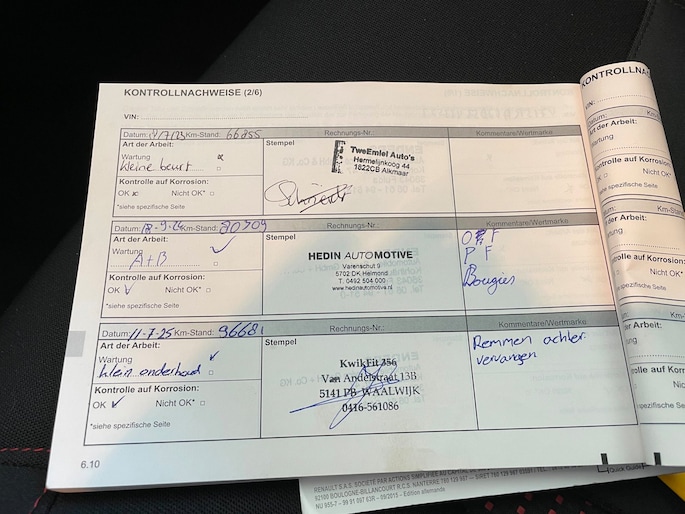 KONTROLLNACHWEISE (2/6)
VIN:
Datum: Km-Stand: 66855 Rechnungs-Nr.: Kommentare/Wertmarke
Art der Arbeit: Stempel
Wartung
kleine beurt
Kontrolle auf Korrosion:
OK Nicht OK*
*siehe spezifische Seite
TweEmlel Auto's
Hermelijnkoog 44
1822CB Alkmaar
Datum: Km-Stand: Rechnungs-Nr.: Kommentare/Wertmarke
Art der Arbeit: Stempel
Wartung
A+B
Kontrolle auf Korrosion:
OK Nicht OK*
*siehe spezifische Seite
HEDIN AUTOMOTIVE
Varenschut 9
5702 DK Helmond
T: 0492 504 000
www.hedinautomotive.nl
P F
Bougies
Datum: 11-7-25 Km-Stand: 96681 Rechnungs-Nr.: Kommentare/Wertmarke
Art der Arbeit: Stempel
Wartung
klein onderhoud
Kontrolle auf Korrosion:
OK Nicht OK*
*siehe spezifische Seite
KwikFit 356
Van Andelstraat 13B
5141 PB WAALWIJK
0416-561086
Remmen achter
vervangen
6.10
KONTROLLNA
VIN:
Datum:
Art der Arbeit:
Wartung
Kontrolle auf Korrosion:
Nicht OK*
spezifische Seite
Km-Stand:
der Arbeit:
Wartung
Kontrolle auf Korrosion:
Nicht OK*
spezifische Seite
Quick Guide
RENAULT S.A.S. SOCIÉTÉ PAR ACTIONS SIMPLIFIÉE AU CAPITAL DE
92100 BOULOGNE-BILLANCOURT R.C.S. NANTERRE
NU 955-7 – 99 91 097 63R – 09/2015 – Edition allemande